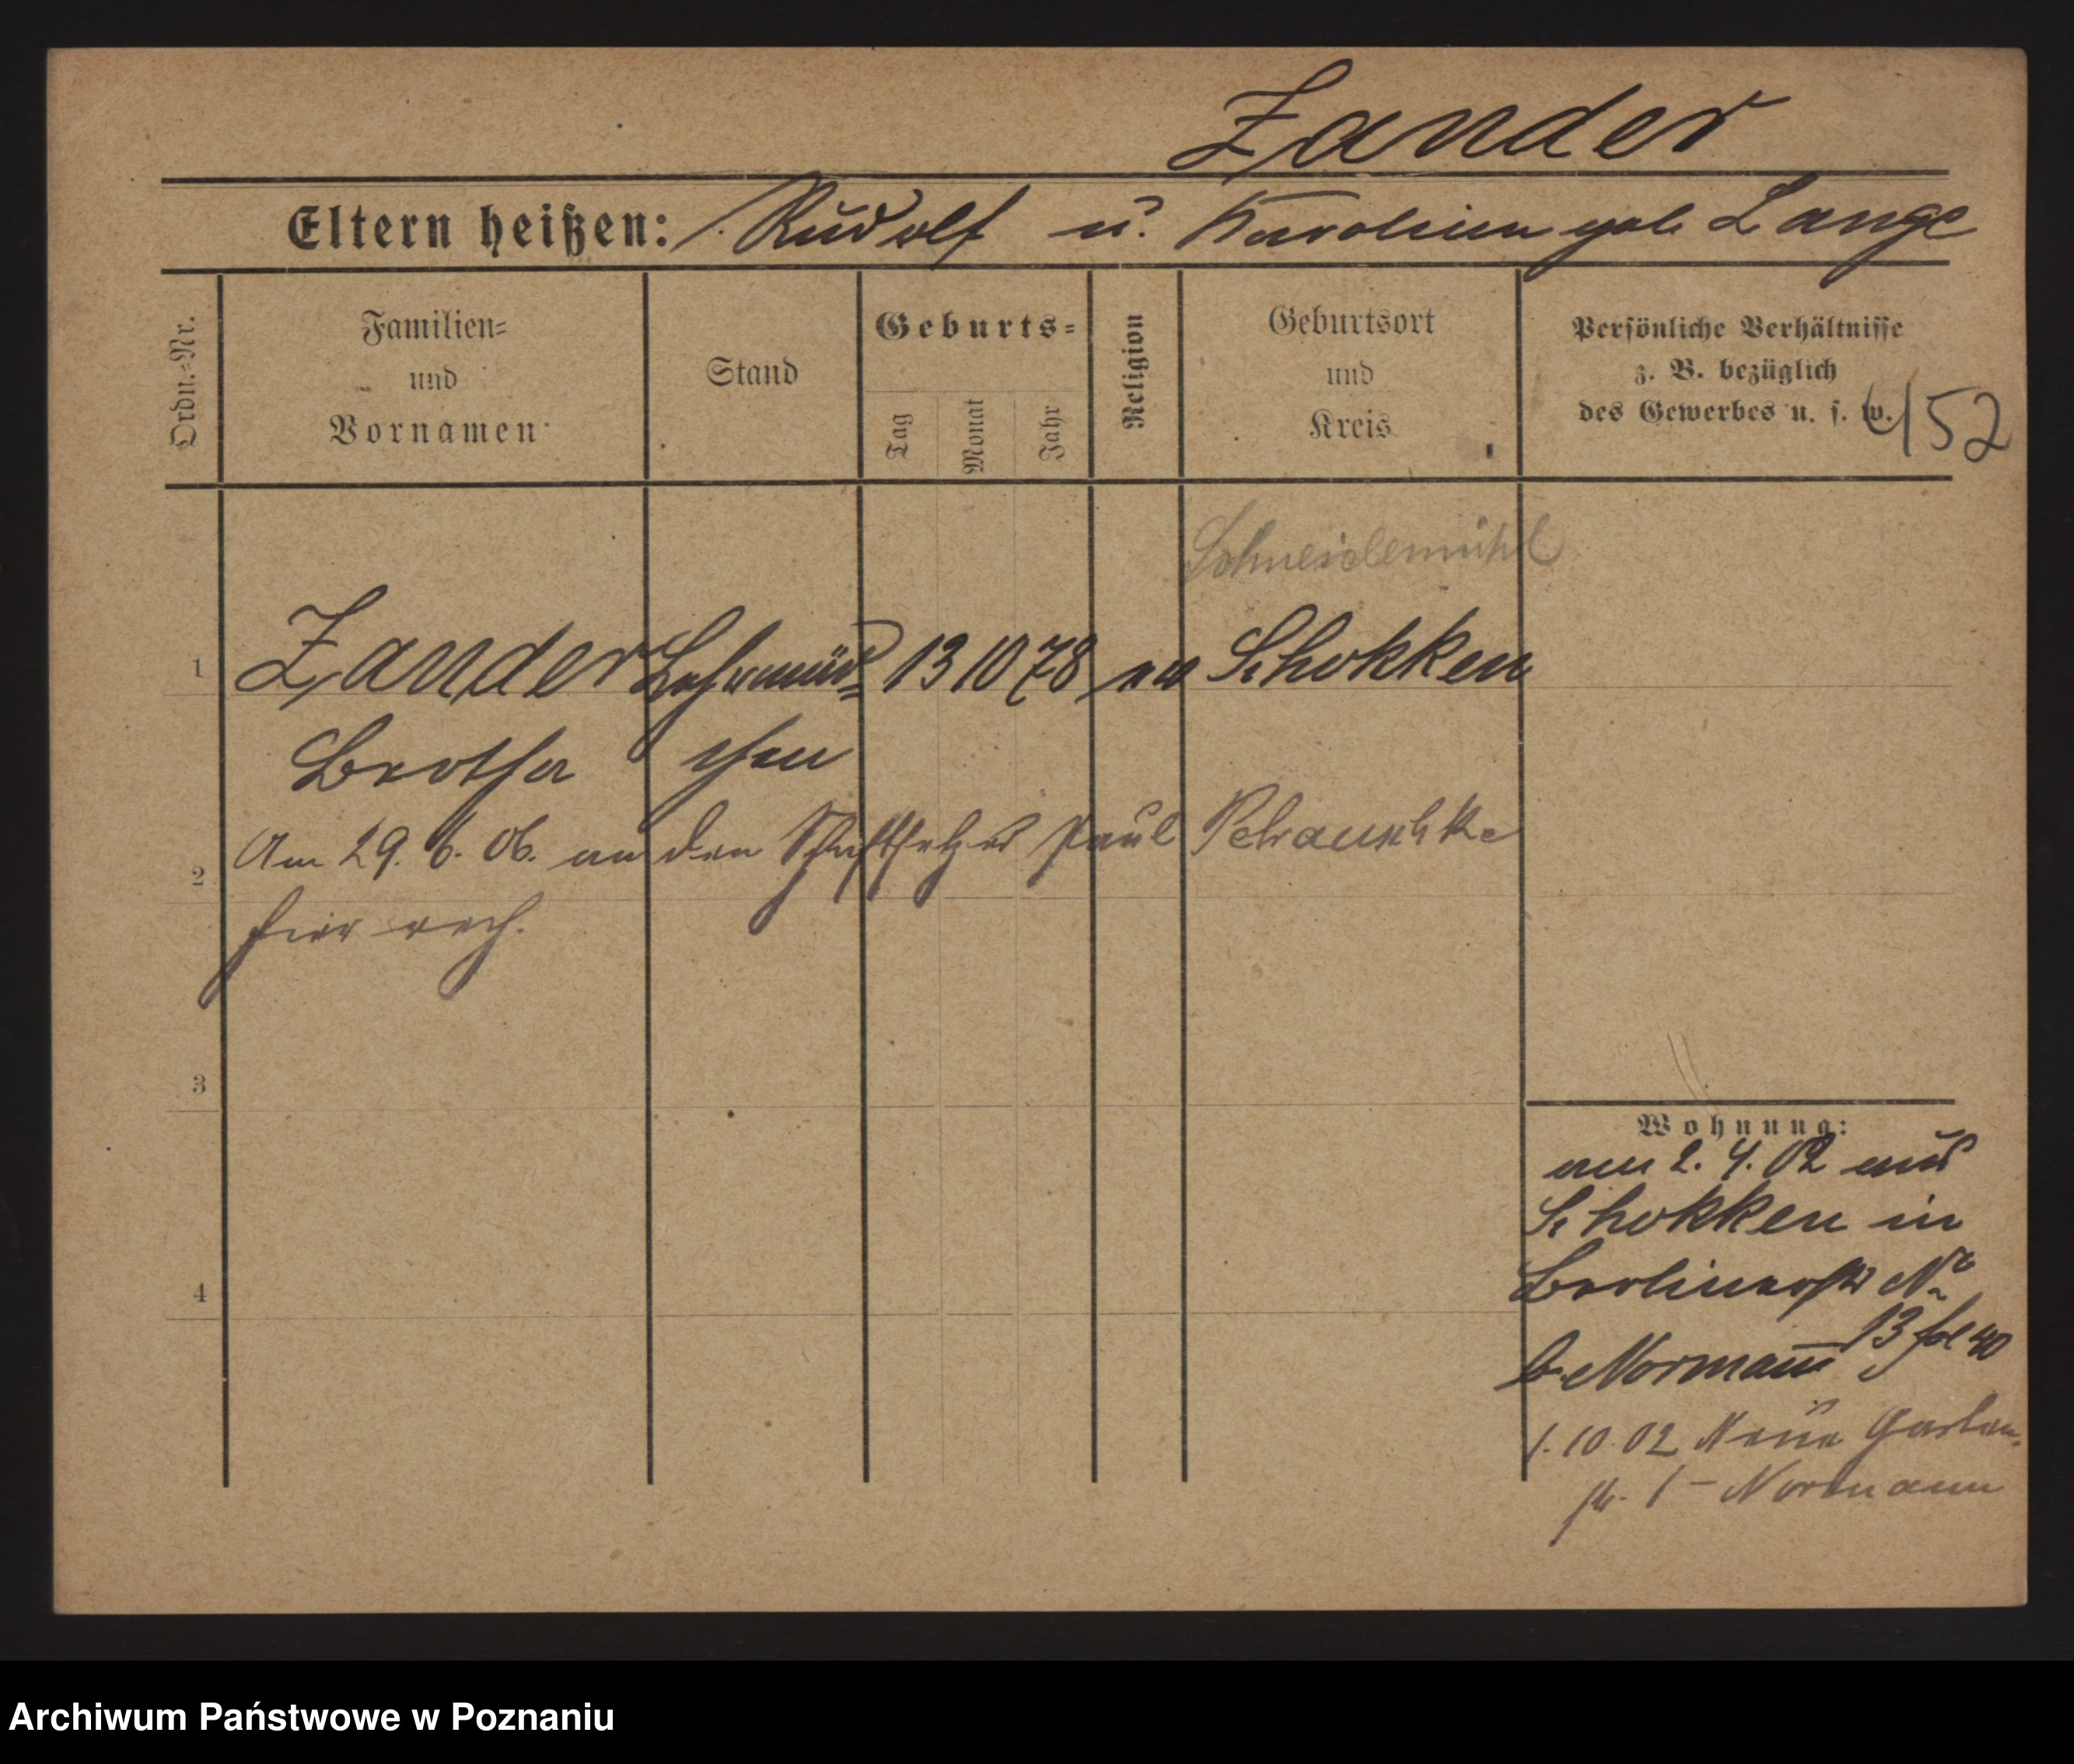 Zander
Eltern heißen: Rudolf u. Karoline geb Lange
Ordn.-Nr.
Familien-
und
Vornamen
Stand
Geburts-
Tag
Monat
Jahr
Religion
Geburtsort
und
Kreis
Persönliche Verhältnisse
z. B. bezüglich
des Gewerbes u. s. w.
152
Schneidemühl
1 Zander Lehrmäd= 13 10 78 ev Schokken
Bertha chen
2 Am 29. 6. 06. an den Paul
hier verh.
3
4
Wohnung:
am 2. 4. 02 aus
Schokken in
Berlinerstr No
13 fol 40
b. Normann
1. 10. 02 Neue Garten-
str. 1 - Normann
Archiwum Państwowe w Poznaniu